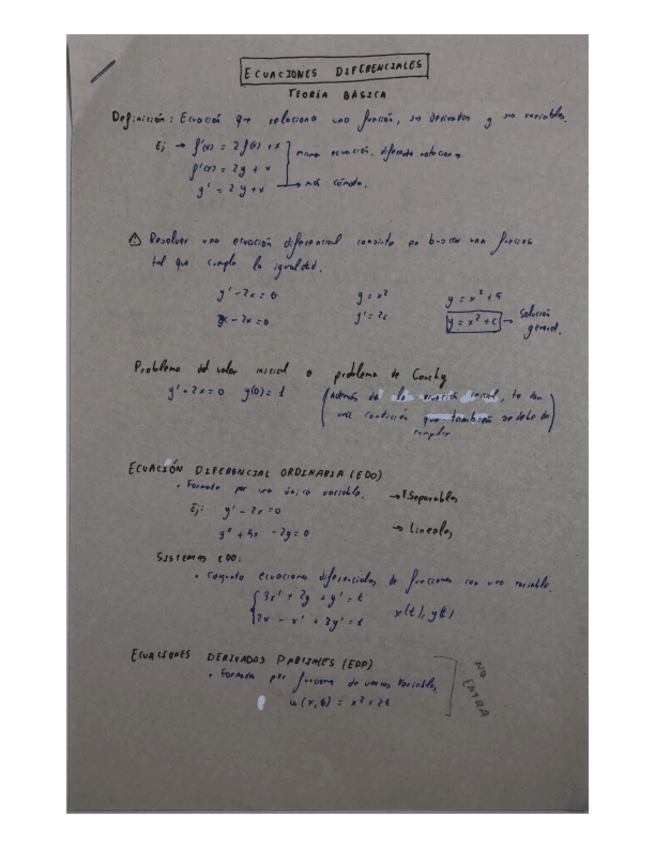 ECUACIONES DIFERENCIALES
TEORIA BÁSICA
Definición: Ecuación que relaciona una función, sus derivadas y sus variables.
Ej → f'(x) = 2f(x) + x
misma ecuación, diferente notación
f'(x) = 2y + x
y' = 2y + x → más cómoda.
⚠ Resolver una ecuación diferencial consiste en buscar una función
tal que cumpla la igualdad.
y' - 2x = 0   y = x²   y = x² + 5
2x - 2x = 0   y' = 2x   y = x² + C → Solución general.
Problema del valor inicial o problema de Cauchy
y' + 2x = 0   y(0) = 1   (Además de la ecuación inicial, te dan
una condición que también se debe de
cumplir)
ECUACIÓN DIFERENCIAL ORDINARIA (EDO)
• Formada por una única variable. → Separables
Ej: y' - 2x = 0
y'' + 5x - 2y = 0   → Lineales
SISTEMAS EDO:
• Conjunto ecuaciones diferenciales de funciones con una variable.
3x' + 2y + y' = t
2x - x' + 3y' = 1   x(t), y(t)
ECUACIONES DERIVADAS PARCIALES (EDP)
• Formada por funciones de varias variables
u(x,t) = x² + 2t
NO ENTRA